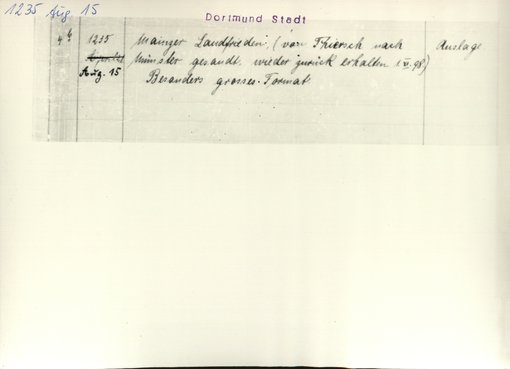 1235 Aug 15
Dortmund Stadt
4b 1235 Mainzer Landfrieden. (von Thiersch nach Auslage
Aug. 15 Münster gesandt. wieder zurück erhalten 1.VI.98)
Besonders grosses Format